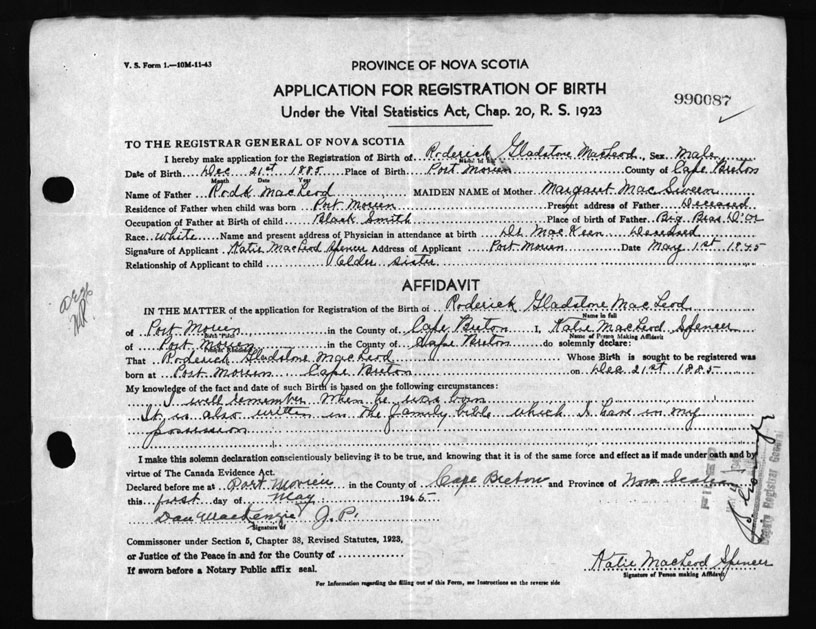 V. S. Form 1.—10M-11-43
PROVINCE OF NOVA SCOTIA
APPLICATION FOR REGISTRATION OF BIRTH
990087
Under the Vital Statistics Act, Chap. 20, R. S. 1923
TO THE REGISTRAR GENERAL OF NOVA SCOTIA
I hereby make application for the Registration of Birth of Roderick Gladstone MacLeod, Sex Male
Date of Birth Dec 21st 1885 Place of Birth Port Morien County of Cape Breton
Month Date Year
Name of Father Rodk MacLeod MAIDEN NAME of Mother Margaret Mac
Residence of Father when child was born Port Morien Present address of Father Deceased
Occupation of Father at Birth of child Black Smith Place of birth of Father Big Bras D'or
Race White Name and present address of Physician in attendance at birth Dr MacKeen Deceased
Signature of Applicant Katie MacLeod Spencer Address of Applicant Port Morien Date May 1st 1945
Relationship of Applicant to child elder sister
AFFIDAVIT
IN THE MATTER of the application for Registration of the Birth of Roderick Gladstone MacLeod
Name in full
of Port Morien in the County of Cape Breton I, Katie MacLeod Spencer
Name of Person Making Affidavit
of Port Morien in the County of Cape Breton do solemnly declare:
That Roderick Gladstone MacLeod Whose Birth is sought to be registered was
born at Port Morien Cape Breton on Dec 21st 1885
My knowledge of the fact and date of such Birth is based on the following circumstances:
I well remember when he was born
It is also written in the family bible which I have in my
possession
I make this solemn declaration conscientiously believing it to be true, and knowing that it is of the same force and effect as if made under oath and by
virtue of The Canada Evidence Act.
Declared before me at Port Morien in the County of Cape Breton and Province of Nova Scotia
this first day of May 1945
Dan MacKenzie J.P.
Signature of
Commissioner under Section 5, Chapter 38, Revised Statutes, 1923,
or Justice of the Peace in and for the County of
If sworn before a Notary Public affix seal.
Katie MacLeod Spencer
Signature of Person making Affidavit
For Information regarding the filling out of this Form, see Instructions on the reverse side
Deputy Registrar General